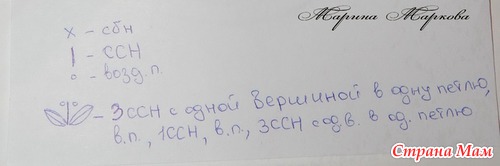 Марина Маркова
х - сбн
| - ССН
° - возд.п.
- 3ССН с одной вершиной в одну петлю,
в.п., 1ССН, в.п., 3ССН с од.в. в од. петлю
Страна Мам